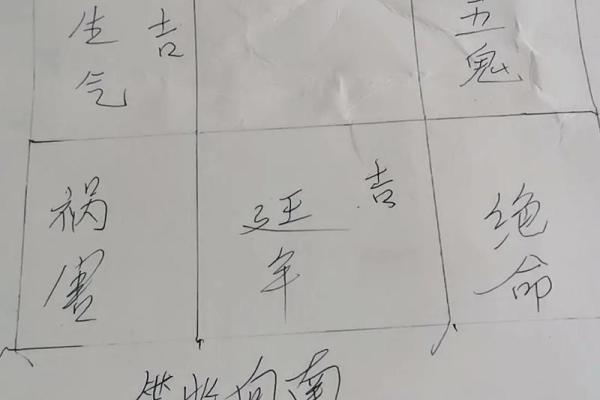 生气 吉
五鬼
祸害
延年 吉
绝命
向南